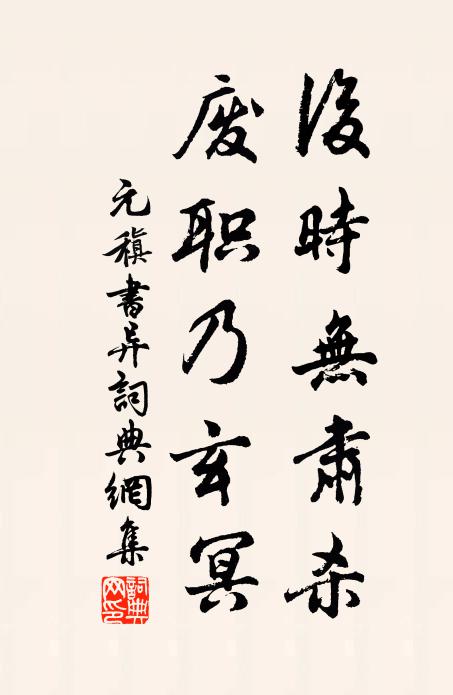 後時無肅杀
废职乃玄冥
元稹書异詞典網集
詞典网印